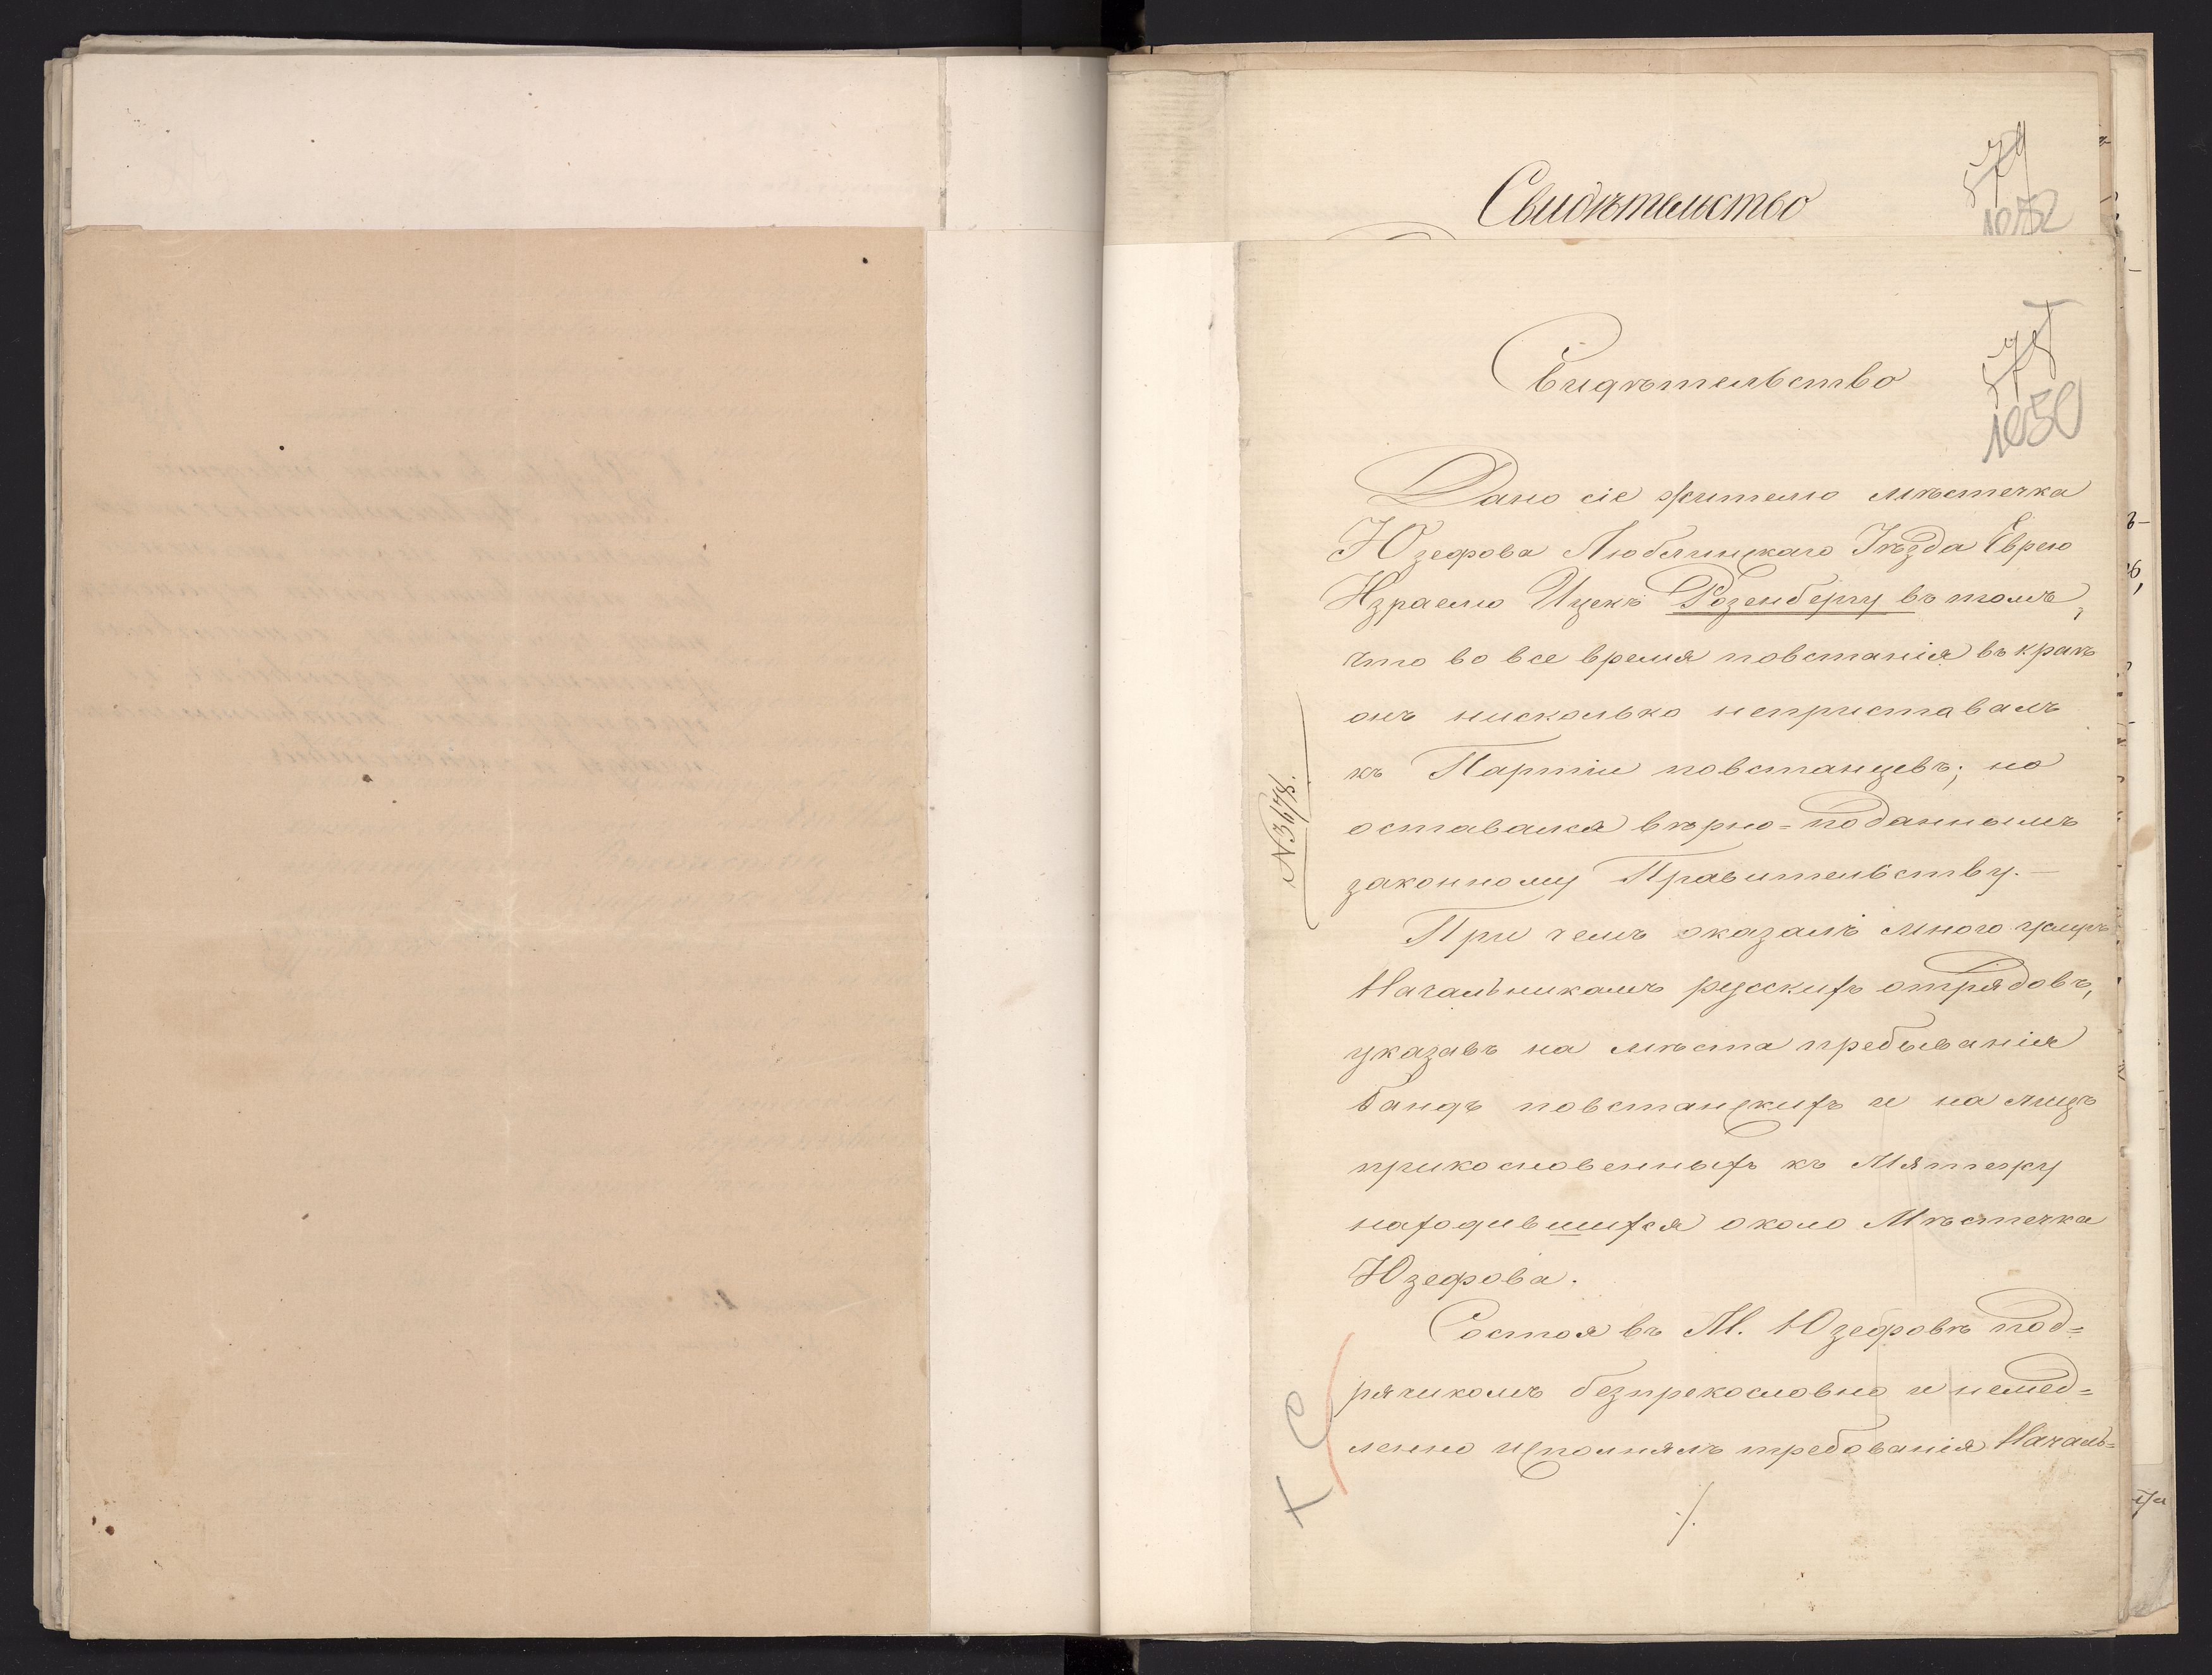 Свидѣтельство
579
1052
Свидѣтельство
578
1050
Дано сіе жителю мѣстечка
Юзефова Люблинскаго Уѣзда Еврею
Израелю Ицекъ Розенбергу въ томъ,
что во все время повстанія въ краѣ
онъ нисколько неприставалъ
къ Партіи повстанцевъ; но
оставался вѣрно=подданнымъ
законному Правительству.—
При чемъ оказалъ много услугъ
Начальникамъ русскихъ отрядовъ,
указавъ на мѣста пребыванія
бандъ повстанскихъ и на лицъ
прикосновенныхъ къ Мятежу
находившихся около Мѣстечка
Юзефова.
Состоя въ М. Юзефовѣ под=
рячикомъ безпрекословно и немед=
ленно исполнялъ требованія Началь=
./.
N 3678.